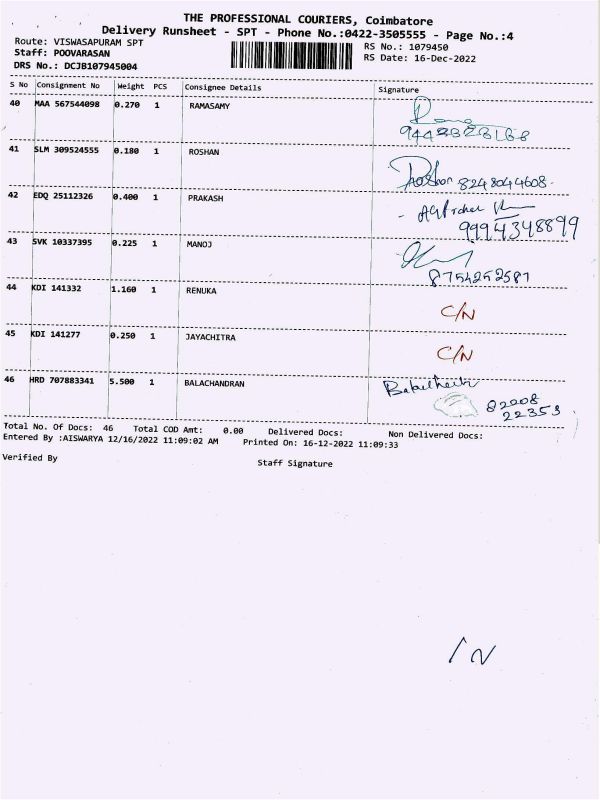 THE PROFESSIONAL COURIERS, Coimbatore
Delivery Runsheet - SPT - Phone No.:0422-3505555 - Page No.:4
Route: VISWASAPURAM SPT
RS No.: 1079450
Staff: POOVARASAN
RS Date: 16-Dec-2022
DRS No.: DCJB107945004
S No Consignment No Weight PCS Consignee Details Signature
40 MAA 567544098 0.270 1 RAMASAMY
41 SLM 309524555 0.180 1 ROSHAN
Roshan 8248044608.
42 EDQ 25112326 0.400 1 PRAKASH
9994348899
43 SVK 10337395 0.225 1 MANOJ
8754252581
44 KDI 141332 1.160 1 RENUKA
C/N
45 KDI 141277 0.250 1 JAYACHITRA
C/N
46 HRD 707883341 5.500 1 BALACHANDRAN
82208
22353
Total No. Of Docs: 46 Total COD Amt: 0.00 Delivered Docs: Non Delivered Docs:
Entered By :AISWARYA 12/16/2022 11:09:02 AM Printed On: 16-12-2022 11:09:33
Verified By
Staff Signature